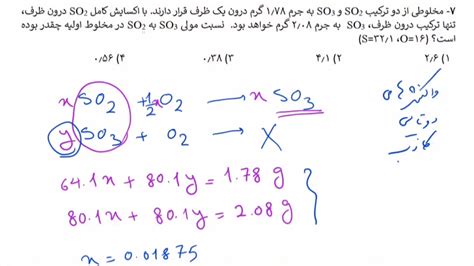 ۷- مخلوطی از دو ترکیب SO₂ و SO₃ به جرم ۱/۷۸ گرم درون یک ظرف قرار دارند. با اکسایش کامل SO₂ درون ظرف،
تنها ترکیب درون ظرف، SO₃ به جرم ۲/۰۸ گرم خواهد بود. نسبت مولی SO₃ به SO₂ در مخلوط اولیه چقدر بوده
است؟ (S=۳۲/۱ ،O=۱۶)
۱) ۲/۶ ۲) ۱/۴ ۳) ۴/۱ ۴) ۰/۵۶
x SO₂ + 1/2 O₂ → x SO₃
y SO₃ + O₂ → X
64.1x + 80.1y = 1.78 g
80.1x + 80.1y = 2.08 g
x = 0.01875